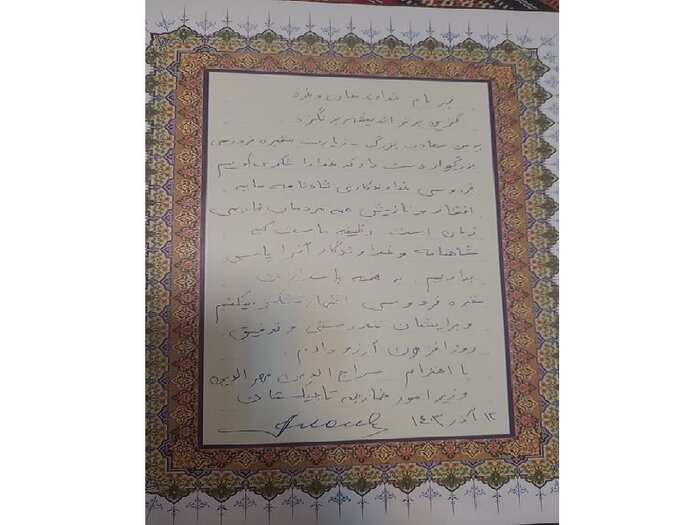 به نام خداوند جان و خرد
کزین برتر اندیشه برنگذرد
به من سعادت بزرگ – زیارت مقبره فردوسی
بزرگوار دست داد که خدا را شکر می‌گوییم
فردوسی خداوندگاری شاهنامه مایه
افتخار و نازیش همه مردمان فارسی
زبان است. وظیفه ماست که
شاهنامه و خداوندگار آنرا پاس
بداریم. به همه پاسداران
مقبره فردوسی اظهار تشکر میکنم
و برایشان تندرستی و توفیق
روزافزون آرزو دارم.
با احترام سراج الدین مهرالدین
وزیر امور خارجه تاجیکستان
۱۲ آذر ۱۴۰۳